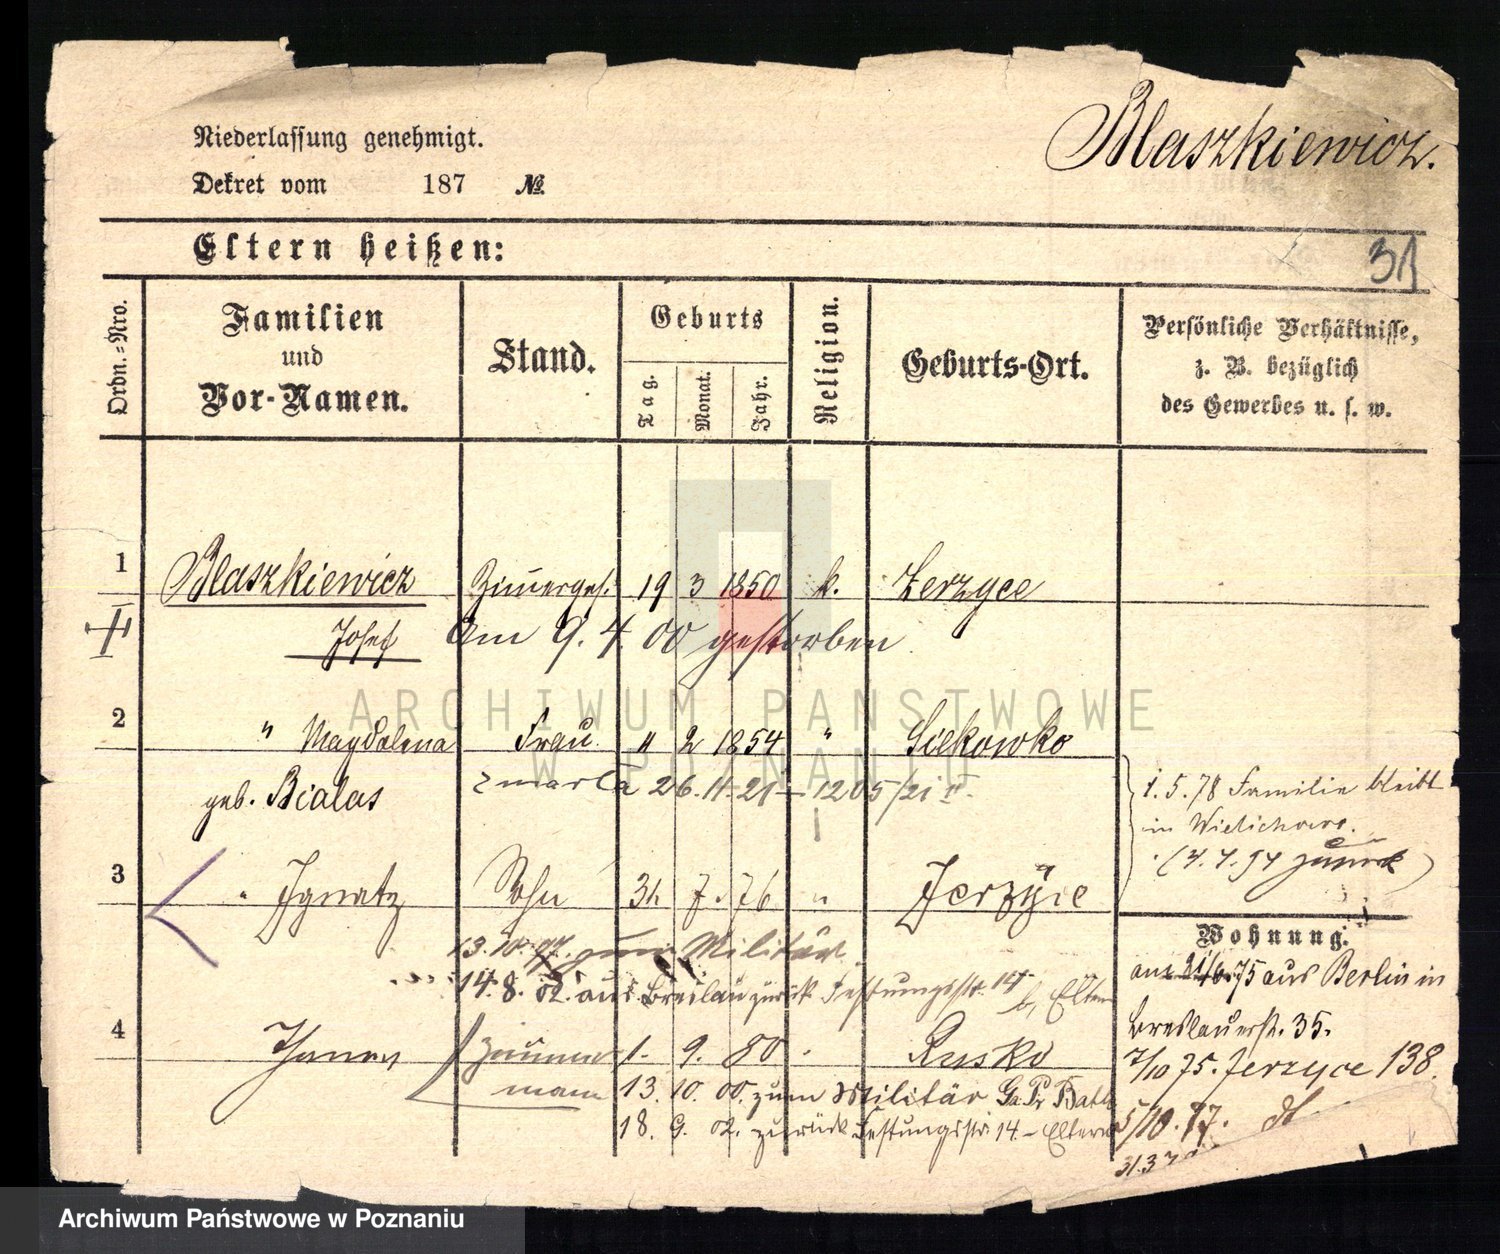 Niederlassung genehmigt.
Dekret vom 187 №
Blaszkiewicz.
Eltern heißen:
31
Ordn.-Nro.
Familien
und
Vor-Namen.
Stand.
Geburts
Tag.
Monat.
Jahr.
Religion.
Geburts-Ort.
Persönliche Verhältnisse,
z. B. bezüglich
des Gewerbes u. s. w.
1 Blaszkiewicz Zimerges. 19 3 1850 k. Jerzyce
Josef am 9. 4. 00 gestorben
2 " Magdalena Frau 2 1854 " 
geb. Bialas zmarła 26. 11. 21 – 1205/21
1.5.78 Familie bleibt
in Wielichowo.
(4.4.94 zurück)
3 Ignatz Sohn 31 7. 76 " Jerzyce
13. 10. 97. zum Militär.
14. 8. 02. aus Breslau zurück Festungsstr. 14 b, Eltern
Wohnung.
21/6.75 aus Berlin in
Breslauerstr. 35.
7/10 75. Jerzyce 138.
5/10. 77.
4 Zimmer 1. 9. 80 Rusko
mann 13. 10. 00. zum Militär
18. 9. 02. zurück Festungsstr. 14. – Eltern
ARCHIWUM PAŃSTWOWE
W POZNANIU
Archiwum Państwowe w Poznaniu